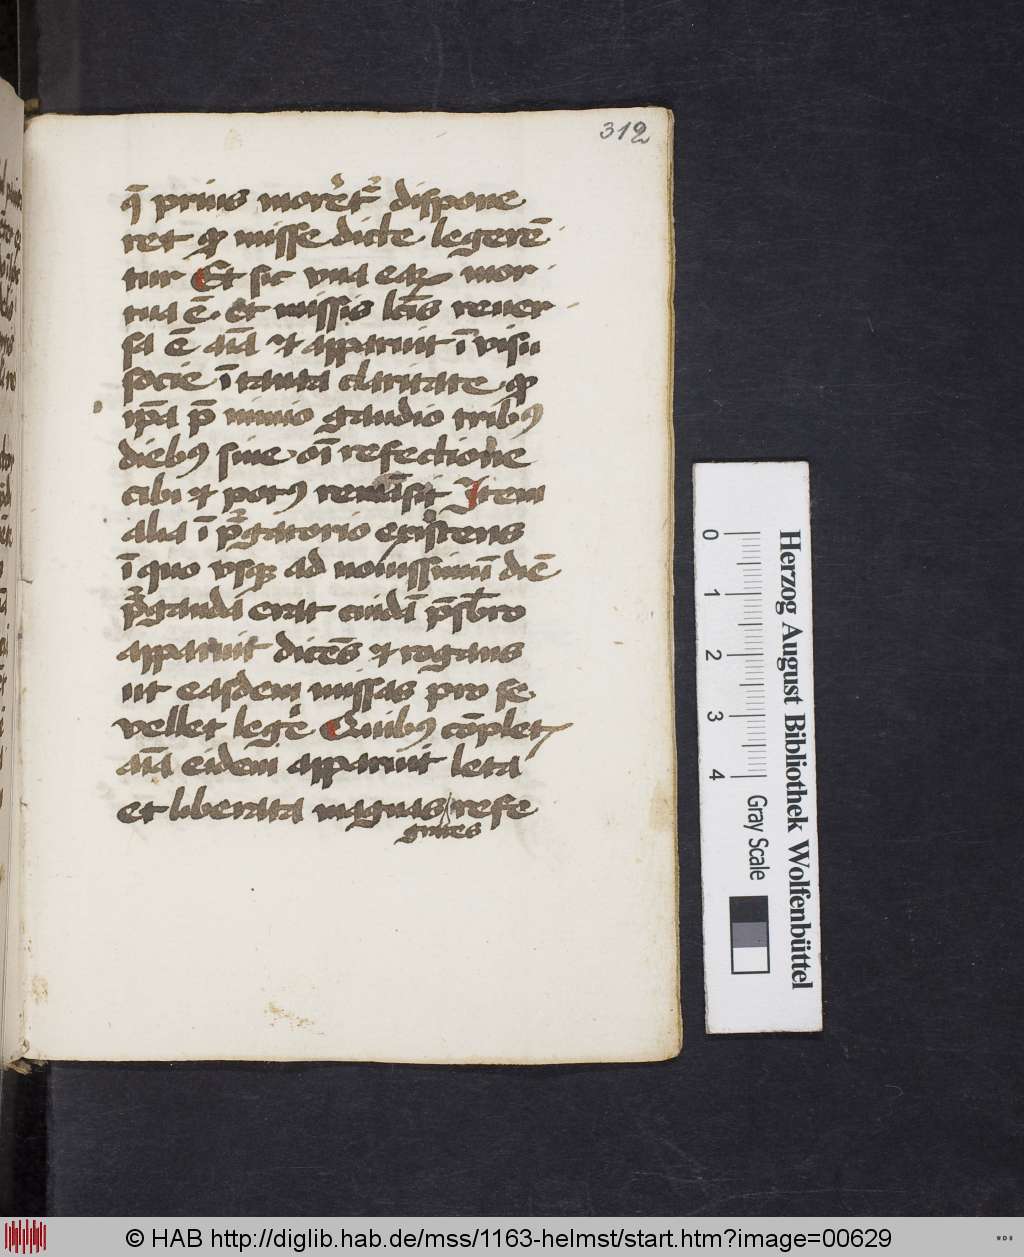 312
q̄ prius morēt᷑ dispone
ret ꝙ misse dicte legerē
tur Et sic vna eaꝝ mor
tua ē et missis lc̄is reuer
sa ē aīa ⁊ apparuit ī visu
socie ī tanta claritate ꝙ
ip̄a p̄ nimio gaudio tribꝰ
diebꝰ sine oī refectione
cibi ⁊ potꝰ remāsit Item
alia ī pᷣgatorio existens
ī quo vsqꝫ ad nouissimū diē
pᷣganda erat cuidā p̄sbr̄o
apparuit dicēs ⁊ rogans
ut easdem missas pro se
vellet leḡe Quibꝰ cōplet
aīa eidem apparuit leta
et liberata magnas refe
grates
0 1 2 3 4
Gray Scale
Herzog August Bibliothek Wolfenbüttel
© HAB http://diglib.hab.de/mss/1163-helmst/start.htm?image=00629